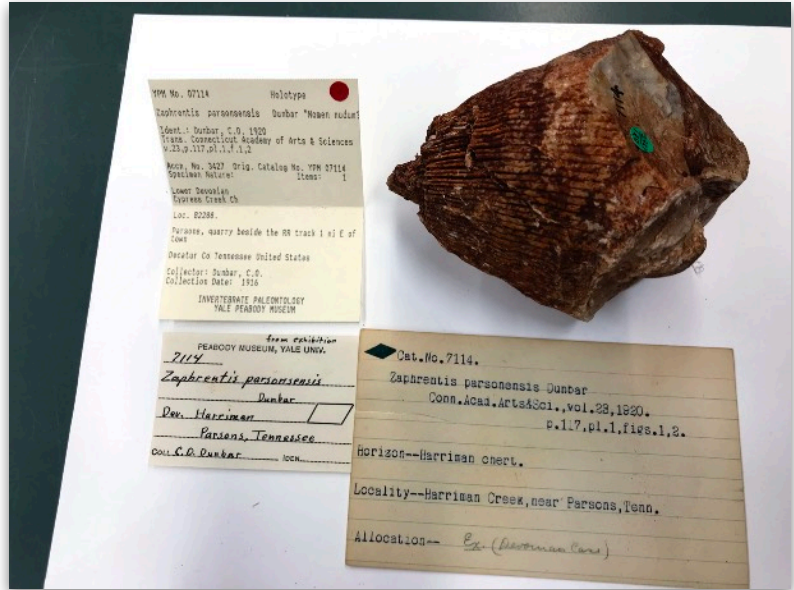 YPM No. 07114 Holotype
Zaphrentis parsonsensis Dunbar "Nomen nudum"
Ident.: Dunbar, C.O. 1920
Trans. Connecticut Academy of Arts & Sciences
v.23,p.117,pl.1,f.1,2
Accn. No. 3427 Orig. Catalog No. YPM 07114
Specimen Nature: Items: 1
Lower Devonian
Cypress Creek Ch
Loc. B2286.
Parsons, quarry beside the RR track 1 mi E of
town
Decatur Co Tennessee United States
Collector: Dunbar, C.O.
Collection Date: 1916
INVERTEBRATE PALEONTOLOGY
YALE PEABODY MUSEUM
from exhibition
PEABODY MUSEUM, YALE UNIV.
7114
Zaphrentis parsonsensis
Dunbar
Dev. Harriman
Parsons, Tennessee
COLL. C.O. Dunbar IDEN.
Cat.No.7114.
Zaphrentis parsonensis Dunbar
Conn.Acad.Arts&Sci.,vol.23,1920.
p.117,pl.1,figs.1,2.
Horizon--Harriman chert.
Locality--Harriman Creek,near Parsons,Tenn.
Allocation-- Ex. (Devonian Case)
7114